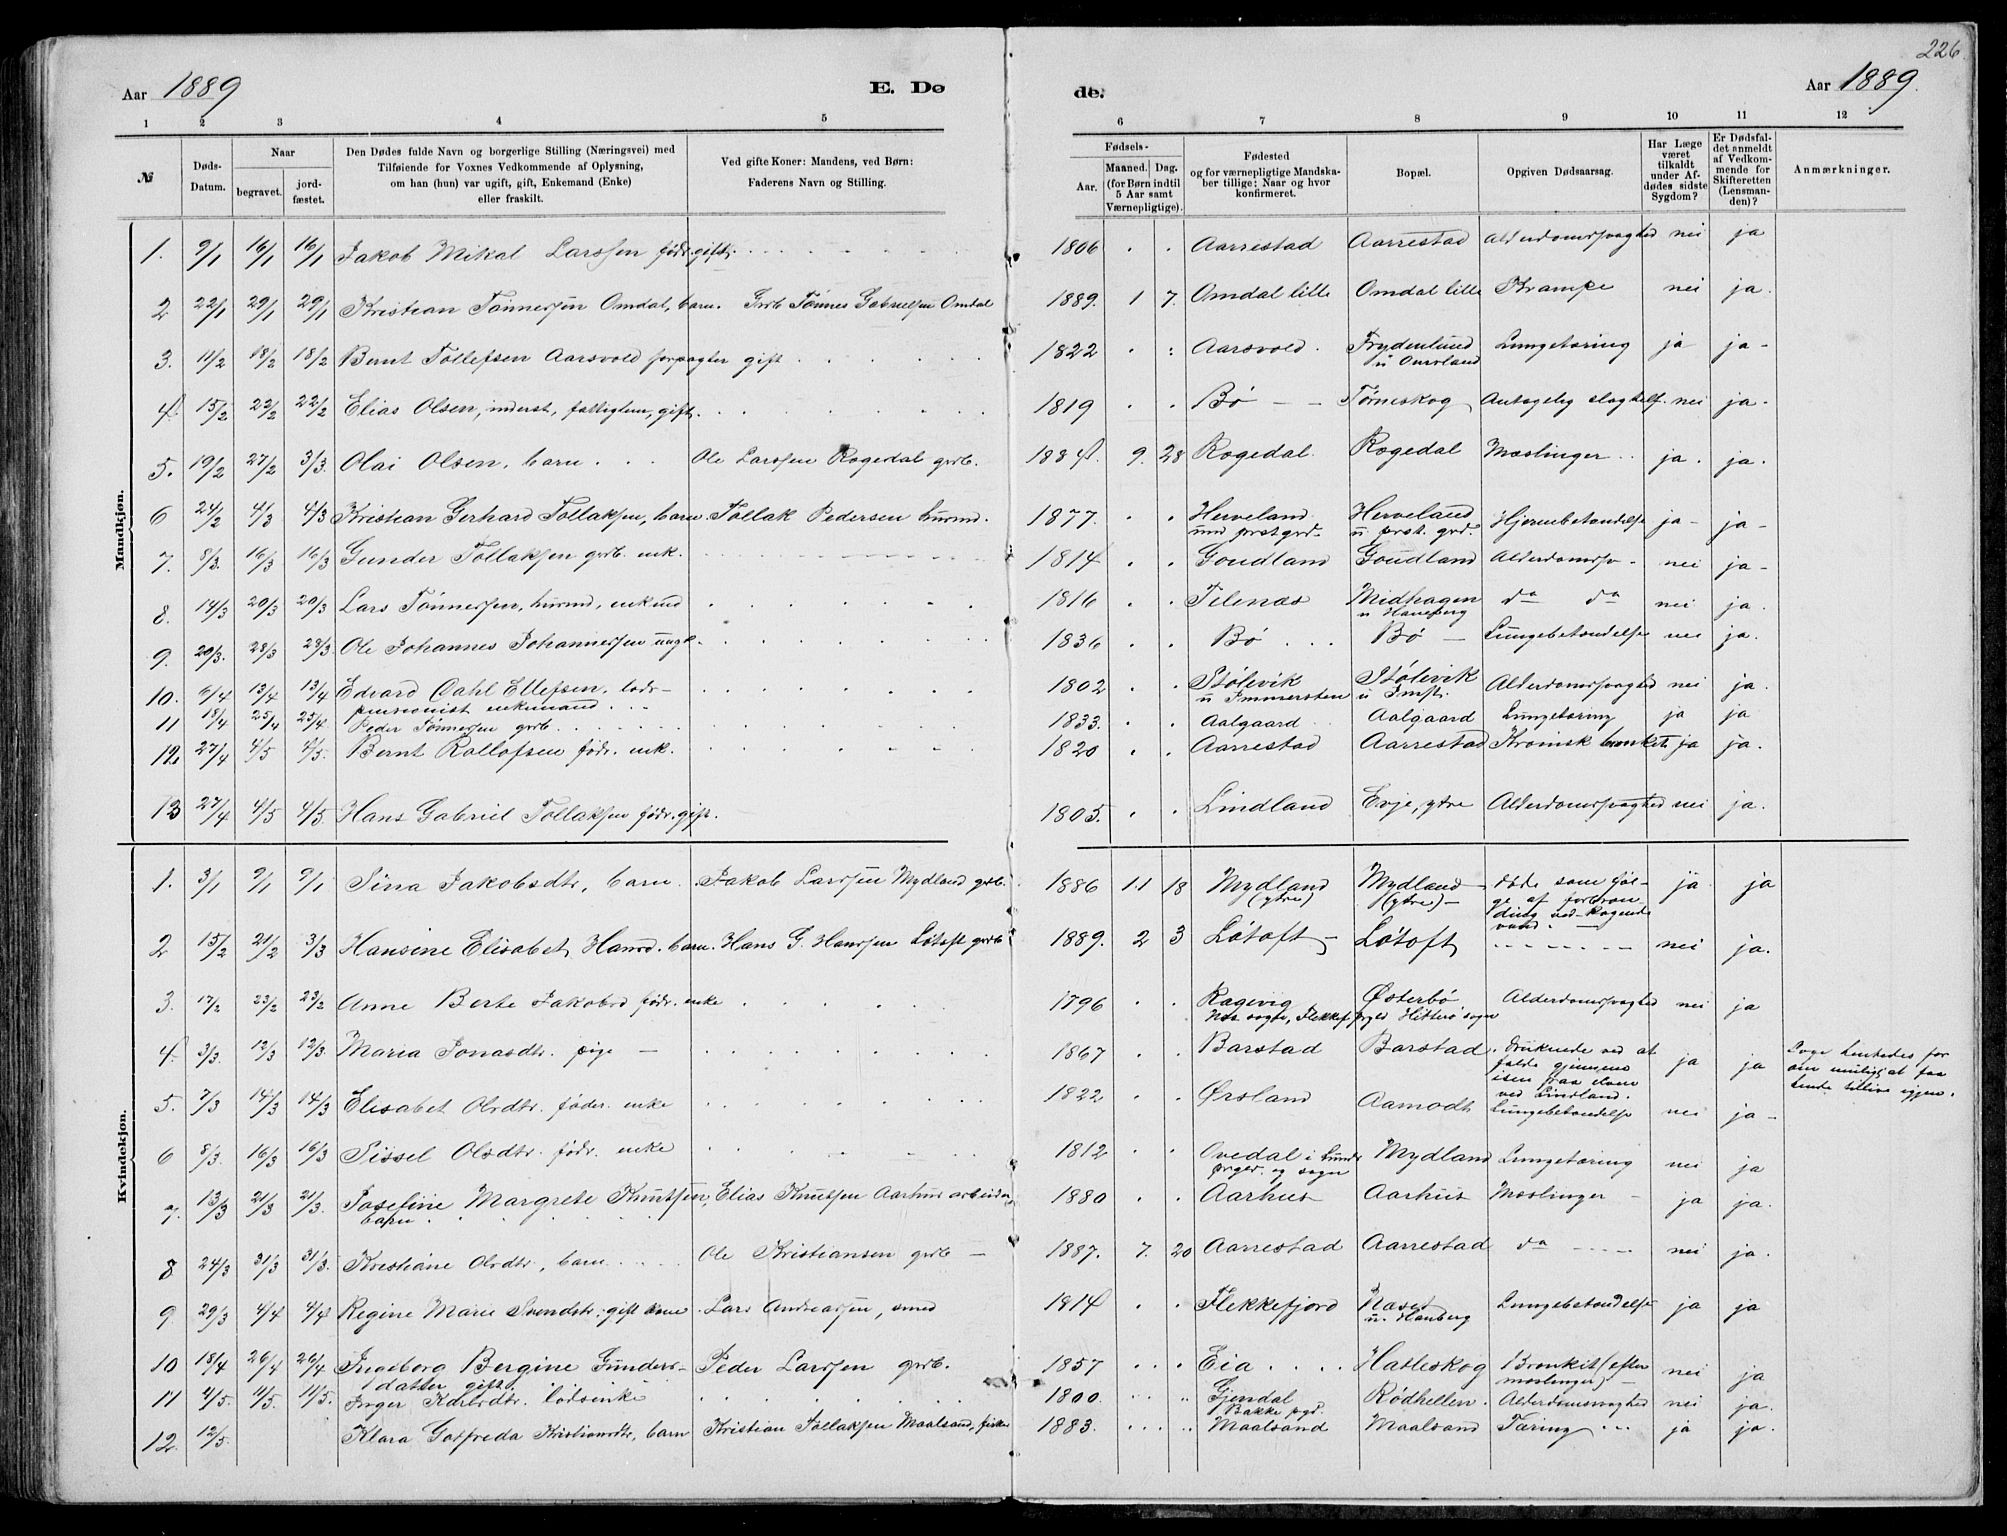 226
Aar 1889
E. Dø
de.
Aar 1889.
1 2 3 4 5 6 7 8 9 10 11 12
№
Døds-Datum.
Naar
begravet.
jord-fæstet.
Den Dødes fulde Navn og borgerlige Stilling (Næringsvei) med
Tilføiende for Voxnes Vedkommende af Oplysning,
om han (hun) var ugift, gift, Enkemand (Enke)
eller fraskilt.
Ved gifte Koner: Mandens, ved Børn:
Faderens Navn og Stilling.
Fødsels-
Aar.
Maaned. Dag.
(for Børn indtil
5 Aar samt
Værnepligtige).
Fødested
og for værnepligtige Mandska-
ber tillige: Naar og hvor
konfirmeret.
Bopæl.
Opgiven Dødsaarsag.
Har Læge
været
tilkaldt
under Af-
dødes sidste
Sygdom?
Er Dødsfal-
det anmeldt
af Vedkom-
mende for
Skifteretten
(Lensman-
den)?
Anmærkninger.
Mandkjøn.
1. 9/1 16/1 16/1 Jakob Mikal Larssen födr. gift. 1806 Aarrestad Aarrestad Alderdomssvaghed nei ja
2 22/1 29/1 29/1 Kristian Tönnessen Omdal, barn. Grb Tönnes Gabrielsen Omdal 1889. 1 7. Omdal lille Omdal lille Krampe nei ja.
3. 11/2 18/2 18/2 Bernt Tollefsen Aarsvold forpagter gift 1822 Aarsvold. Frydenlund Lungetæring ja ja-
4. 15/2 22/2 22/2 Elias Olsen, inderst, fattiglem, gift. 1819 Bö Törneskog Antagelig slagtilf. nei ja-
5. 19/2 27/2 3/3. Olai Olsen, barn Ole Larssen Rogedal grb. 1884. 9. 28 Rogedal. Rogedal Mæslinger ja. ja.
6 24/2 4/3 4/3 Kristian Gerhard Tollaksen, barn. Tollak Pedersen husmd. 1877. Herveland Herveland Hjernebetændelse ja- ja-
und prstgrd. u prst. grd.
7. 8/3. 16/3 16/3 Gunder Tollaksen grb. enk. 1814 Goudland Goudland Alderdomssv. nei ja-
8. 14/3 20/3 20/3 Lars Tönnessen, husmd, enkmd 1816 Telenæs Midhagen do do nei ja.
9. 20/3. 28/3 28/3. Ole Johannes Johannessen ungk. 1836 Bö Bö Lungebetændelse nei ja.
10. 6/4 13/4 13/4 Edvard Dahl Ellefsen, lods- 1802 Stölsvik Stölsvik Alderdomssvaghed nei ja.
pensionist enkemand u Immersten u Imst.
11 18/4 25/4 25/4. Peder Tönnessen grb. 1833. Aalgaard Aalgaard Lungetæring ja ja
12. 27/4 4/5 4/5. Bernt Rollofsen födr. enk. 1820 Aarrestad Aarrestad Kronisk bronkit. ja ja.
13 27/4 4/5 4/5. Hans Gabriel Tollaksen födr. gift. 1805. Lindland Evje, ytre Alderdomssvaghed nei ja.
Kvindekjøn.
1. 3/1 9/1 9/1 Sina Jakobsdtr, barn. Jakob Larssen Mydland grb. 1886 11 18 Mydland Mydland döde som föl- ja ja
(ytre) (ytre) ge af forbræn-
ding ved kogende
vand.
2 15/2 21/2 3/3 Hansine Elisabet Hansd. barn. Hans G. Hanssen Lötoft grb 1889. 2 3 Lötoft Lötoft nei ja.
3. 17/2 23/2 23/2 Anne Berte Jakobsd födr. enke 1796 Ragevig Österbö Alderdomssvaghed nei ja
Næs sogn, Flekkef. prgld Hitterö sogn
4. 3/3. 12/3 12/3. Maria Jonasdtr. pige 1867 Barstad Barstad druknede ved at ja ja Læge hentedes for
falde gjennem om muligt at faa
isen paa elven hende tillive igjen.
ved Lindland.
5. 7/3 14/3 14/3 Elisabet Olsdtr. föder. enke 1822 Örsland Aamodt Lungebetændelse nei ja-
6 8/3. 16/3 16/3 Sissel Olsdtr. födr. enke 1812 Ovedal i Lunds Mydland Lungetæring nei ja
prgld. og sogn
7. 13/3 21/3 21/3. Josefine Margrete Knutsen, Elias Knutsen Aarhus arbeider 1880 Aarhus Aarhus Mæslinger ja ja.
barn
8 24/3 31/3 31/3. Kristiane Olsdtr, barn Ole Kristiansen grb 1887. 7. 20 Aarrestad Aarrestad do nei ja.
9 29/3 4/4 4/4 Regine Marie Svendsdtr. gift kone Lars Andreassen, smed 1814 Flekkefjord Næset Lungebetændelse ja ja
u. Hauberg
10 18/4 26/4 26/4. Ingeborg Bergine Gunders- Peder Larssen grb. 1857 Eia Hasleskog Bronkit (efter nei ja
datter gift. mæslinger)
11 4/5. 11/5. 11/5. Inger Karlsdtr. lodsenke 1800. Gjendal Rödhellen. Alderdomssvaghed nei ja.
Bakke pgd.
12. 12/5. Klara Gotfreda Kristiansdtr, barn Kristian Tollaksen Maalsand, fisker 1883. Maalsand Maalsand Tæring ja ja.